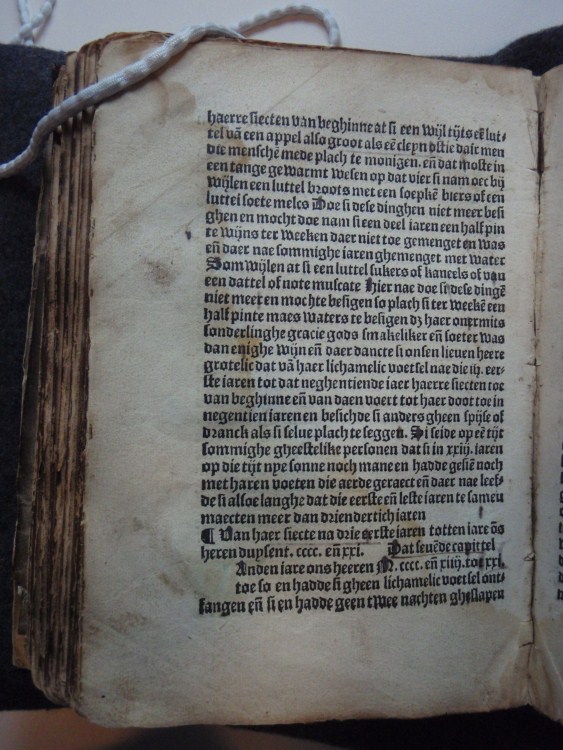 haerre siecten van beghinne at si een wijl tijts eē lut-
tel vā een appel also groot als eē cleyn ostie dair men
die menschē mede plach te monigen. eñ dat moste in
een tange gewarmt wesen op dat vier si nam oec bij
wijlen een luttel broots met een soepkē biers of een
luttel soete melcs Doe si dese dinghen niet meer besi
ghen en mocht doe nam si een deel iaren een half pin
te wijns ter weeken daer niet toe gemenget en was
eñ daer nae sommighe iaren ghemenget met water
Som wijlen at si een luttel sukers of kaneels of van
een dattel of note muscate Hier nae doe si dese dingē
niet meer en mochte besigen so plach si ter weekē een
half pinte maes waters te besigen dz haer onrmits
sonderlinghe gracie gods smakeliker eñ soeter was
dan enighe wijn eñ daer dancte si onsen lieuen heere
grotelic dat vā haer lichamelic voetsel nae die iij. eer-
ste iaren tot dat neghentiende iaer haerre siecten toe
van beghinne eñ van daen voert tot haer doot toe in
negentien iaren en besichde si anders gheen spijse of
dranck als si selue plach te seggen. Si seide op eē tijt
sommighe gheestelike personen dat si in xxiij. iaren
op die tijt nye sonne noch mane en hadde gesiē noch
met haren voeten die aerde geraect eñ daer nae leef-
de si alsoe langhe dat die eerste eñ leste iaren te sameu
maecten meer dan driendertich iaren
¶ Van haer siecte na drie eerste iaren totten iare ōs
heren duysent. cccc. eñ xxi. Dat seuēde capittel
Anden iare ons heeren M. cccc. eñ xiiij. tot xxi.
toe so en hadde si gheen lichamelic voetsel ont-
fangen eñ si en hadde geen twee nachten gheslapen